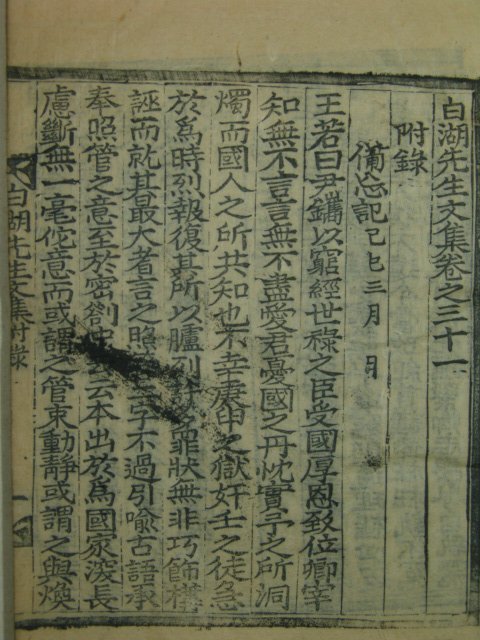 白湖先生文集卷之三十一
附錄
備忘記 己巳三月 日
王若曰尹鑴以窮經世祿之臣受國厚恩致位卿宰
知無不言言無不盡愛君憂國之丹忱實予之所洞
燭而國人之所共知也不幸庚申之獄奸壬之徒急
於爲時烈報復其所以臚列罪狀無非巧飾構
誣而就其最大者言之照字不過引喩古語承
奉照管之意至於密劄云本出於爲國家深長
慮斷無一毫佗意而或謂之管束動靜或謂之與煥
白湖先生文集附錄 一